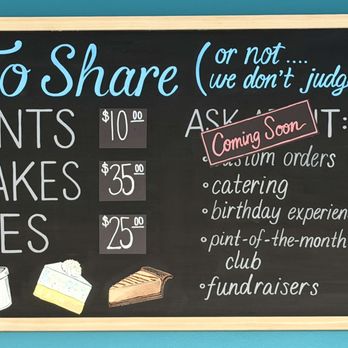 To Share (or not....
we don't judg
NTS $10.00
AKES $35.00
ES $25.00
ASK ABOUT:
Coming Soon
• custom orders
• catering
• birthday experien
• pint-of-the-month
club
• fundraisers